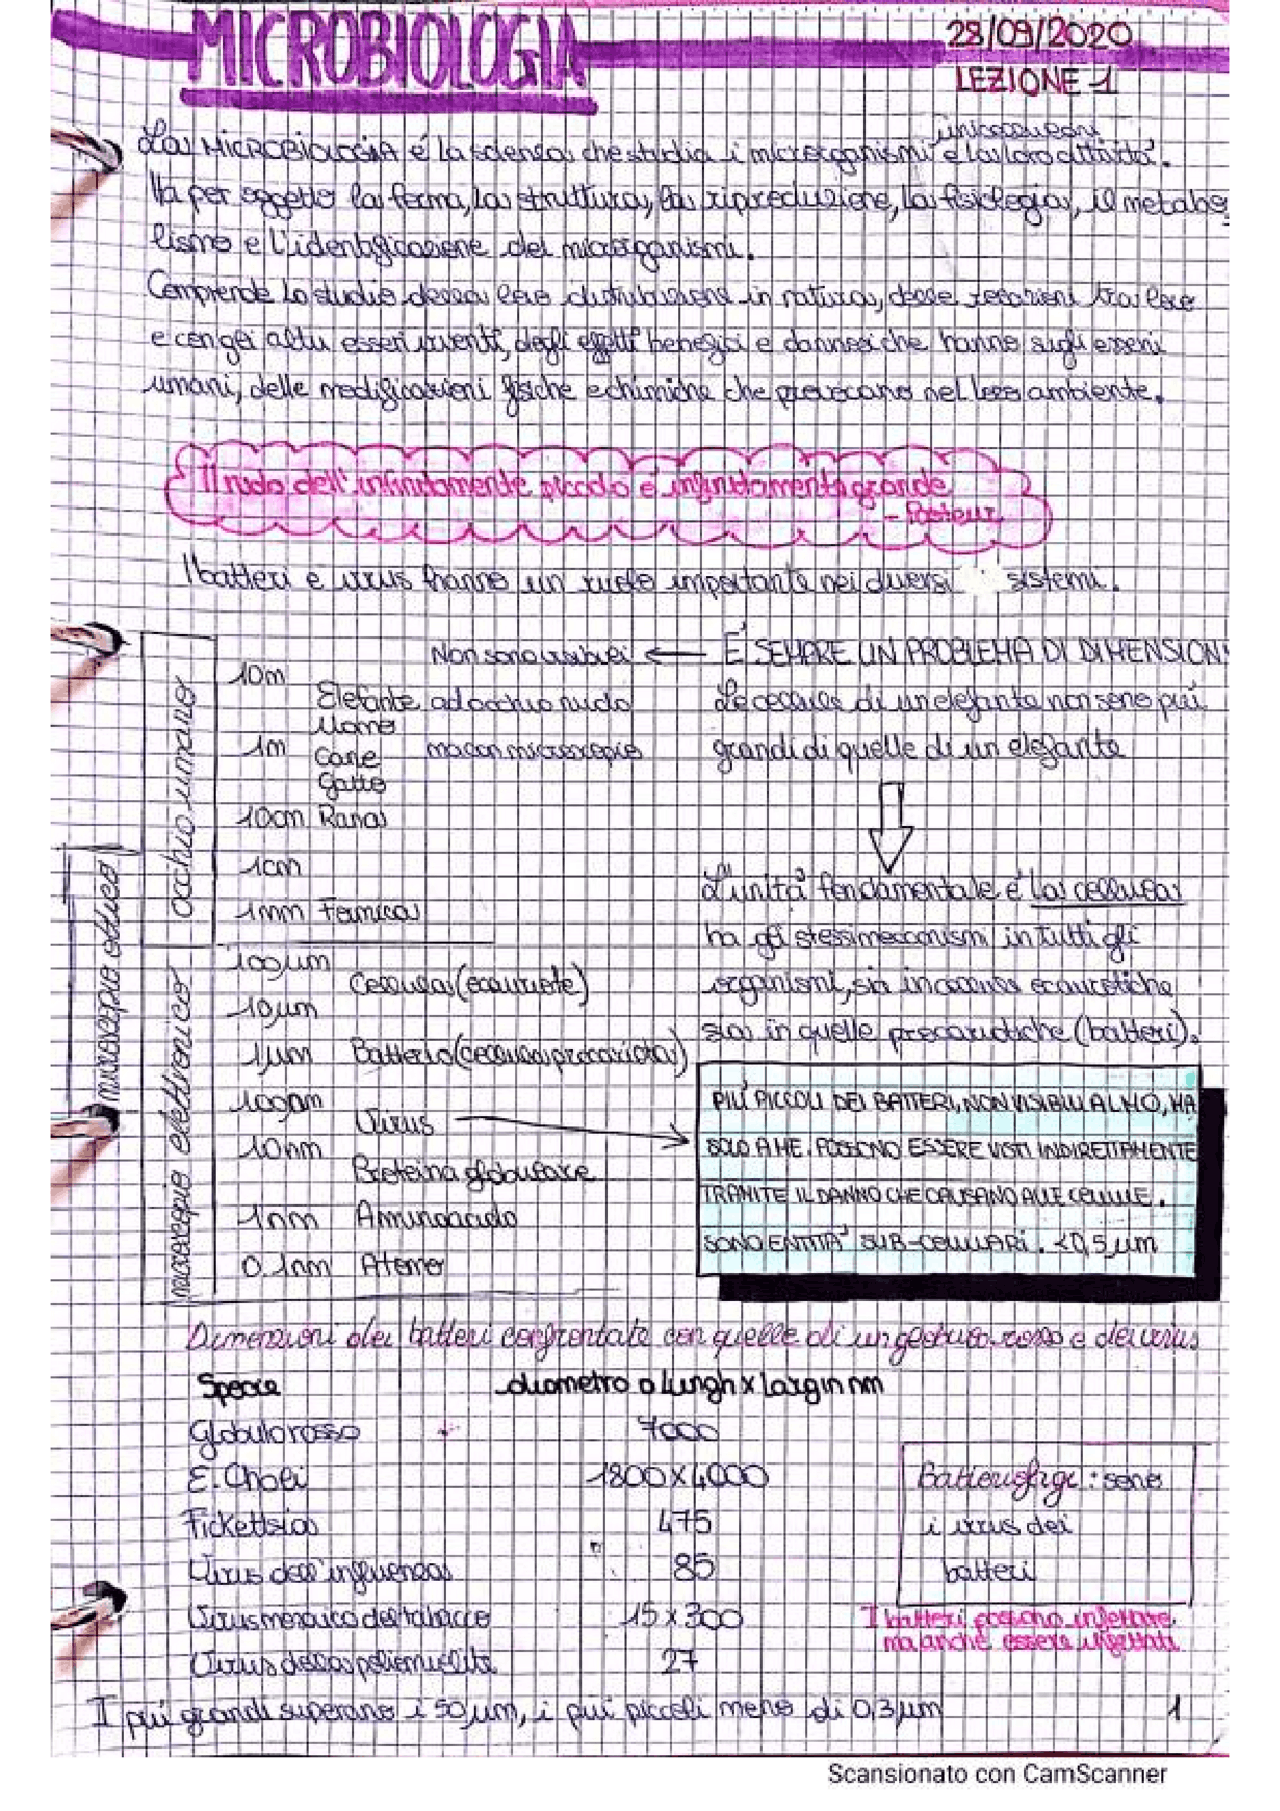 MICROBIOLOGIA
28/09/2020
LEZIONE 1
unicellulari
La MICROBIOLOGIA é la scienza che studia i microrganismi e la loro attività.
Ha per oggetto la forma, la struttura, la riproduzione, la fisiologia, il metabo
lismo e l'identificazione dei microrganismi.
Comprende lo studio della loro distribuzione in natura, delle relazioni tra loro
e con gli altri esseri viventi, degli effetti benefici e dannosi che hanno sugli esseri
umani, delle modificazioni fisiche e chimiche che provocano nel loro ambiente.
Il ruolo dell'infinitamente piccolo é infinitamente grande
- Pasteur
I batteri e virus hanno un ruolo importante nei diversi sistemi.
Non sono visibili ← É SEMPRE UN PROBLEMA DI DIMENSIONI
10m
Elefante ad occhio nudo Le cellule di un elefante non sono più
Uomo
1m
Cane ma con microscopio grandi di quelle di un elefante
Gatto
10cm Rana
1cm
1mm Formica
occhio umano
microscopio ottico
microscopio elettronico
L'unità fondamentale é la cellula
ha gli stessi meccanismi in tutti gli
organismi, sia in cellule eucariotiche
sia in quelle procariotiche (batteri).
100µm
Cellula (eucariote)
10µm
1µm Batterio (cellula procariota)
100nm
Virus
10nm
Proteina globulare
1nm Aminoacido
0.1nm Atomo
PIÙ PICCOLI DEI BATTERI, NON VISIBILI AL MO, MA
SOLO A ME. POSSONO ESSERE VISTI INDIRETTAMENTE
TRAMITE IL DANNO CHE CAUSANO ALLE CELLULE.
SONO ENTITÀ SUB-CELLULARI. <0,5µm
Dimensioni dei batteri confrontate con quelle di un globulo rosso e dei virus
Specie diametro o lungh x largh in nm
Globulo rosso 7000
E. Choli 1800 x 4000
Rickettsia 475
Virus dell'influenza 85
Virus mosaico del tabacco 15 x 300
Virus della poliomielite 27
Batteriofagi: sono
i virus dei
batteri
I batteri possono infettare
ma anche essere infettati
I più grandi superano i 50µm, i più piccoli meno di 0,3µm
1
Scansionato con CamScanner